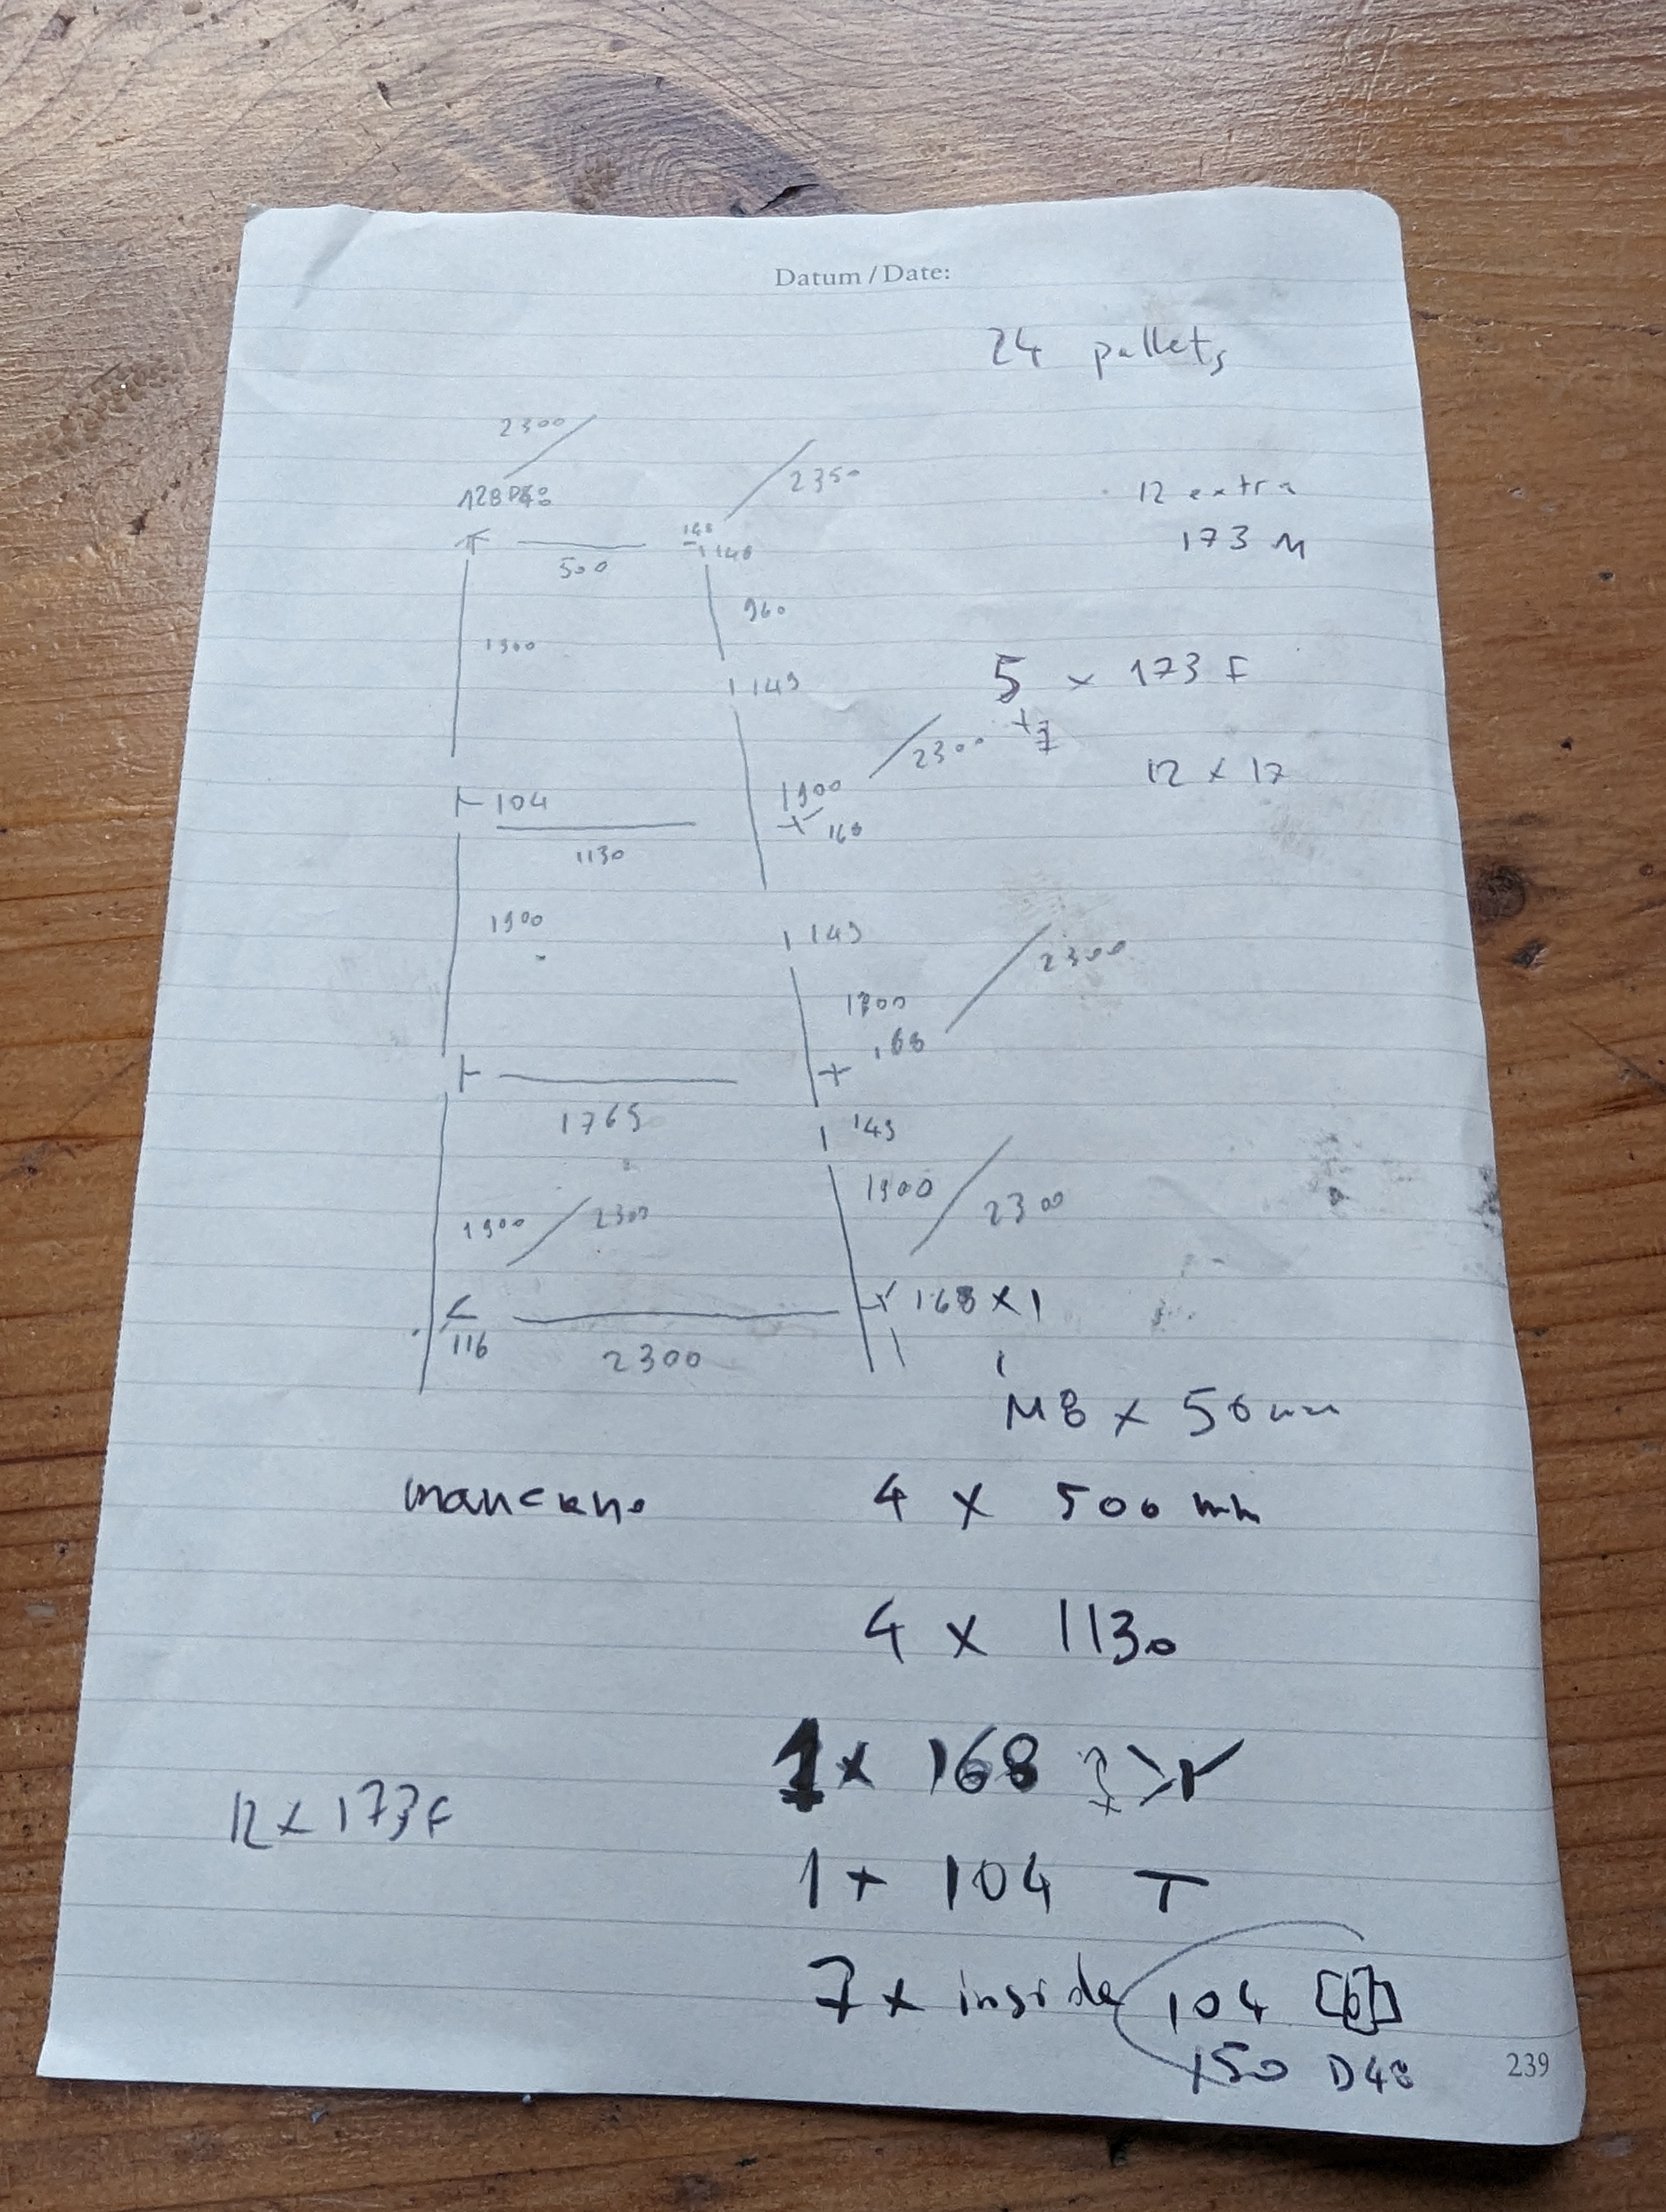 Datum / Date:
24 pallets
2300
2350
12 extra
128 D48
148
148
173 M
500
960
1900
149
5 x 173 F
+7
2300
12 x 17
104
1900
168
1130
1900
149
2300
1900
168
1765
149
1900
2300
1900
2300
116
168 x 1
2300
M8 x 50 mm
mancano
4 x 500 mm
4 x 1130
1 x 168
12 x 173 F
1 x 104 T
7 x inside 104
150 D48
239